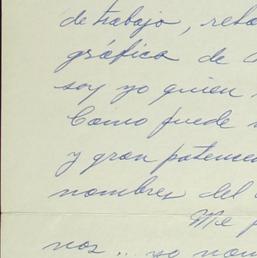 de trabajo, reto
gráfica de
soy yo quien
Como puede
y gran potence
nombres del
Me p
nos... so nom